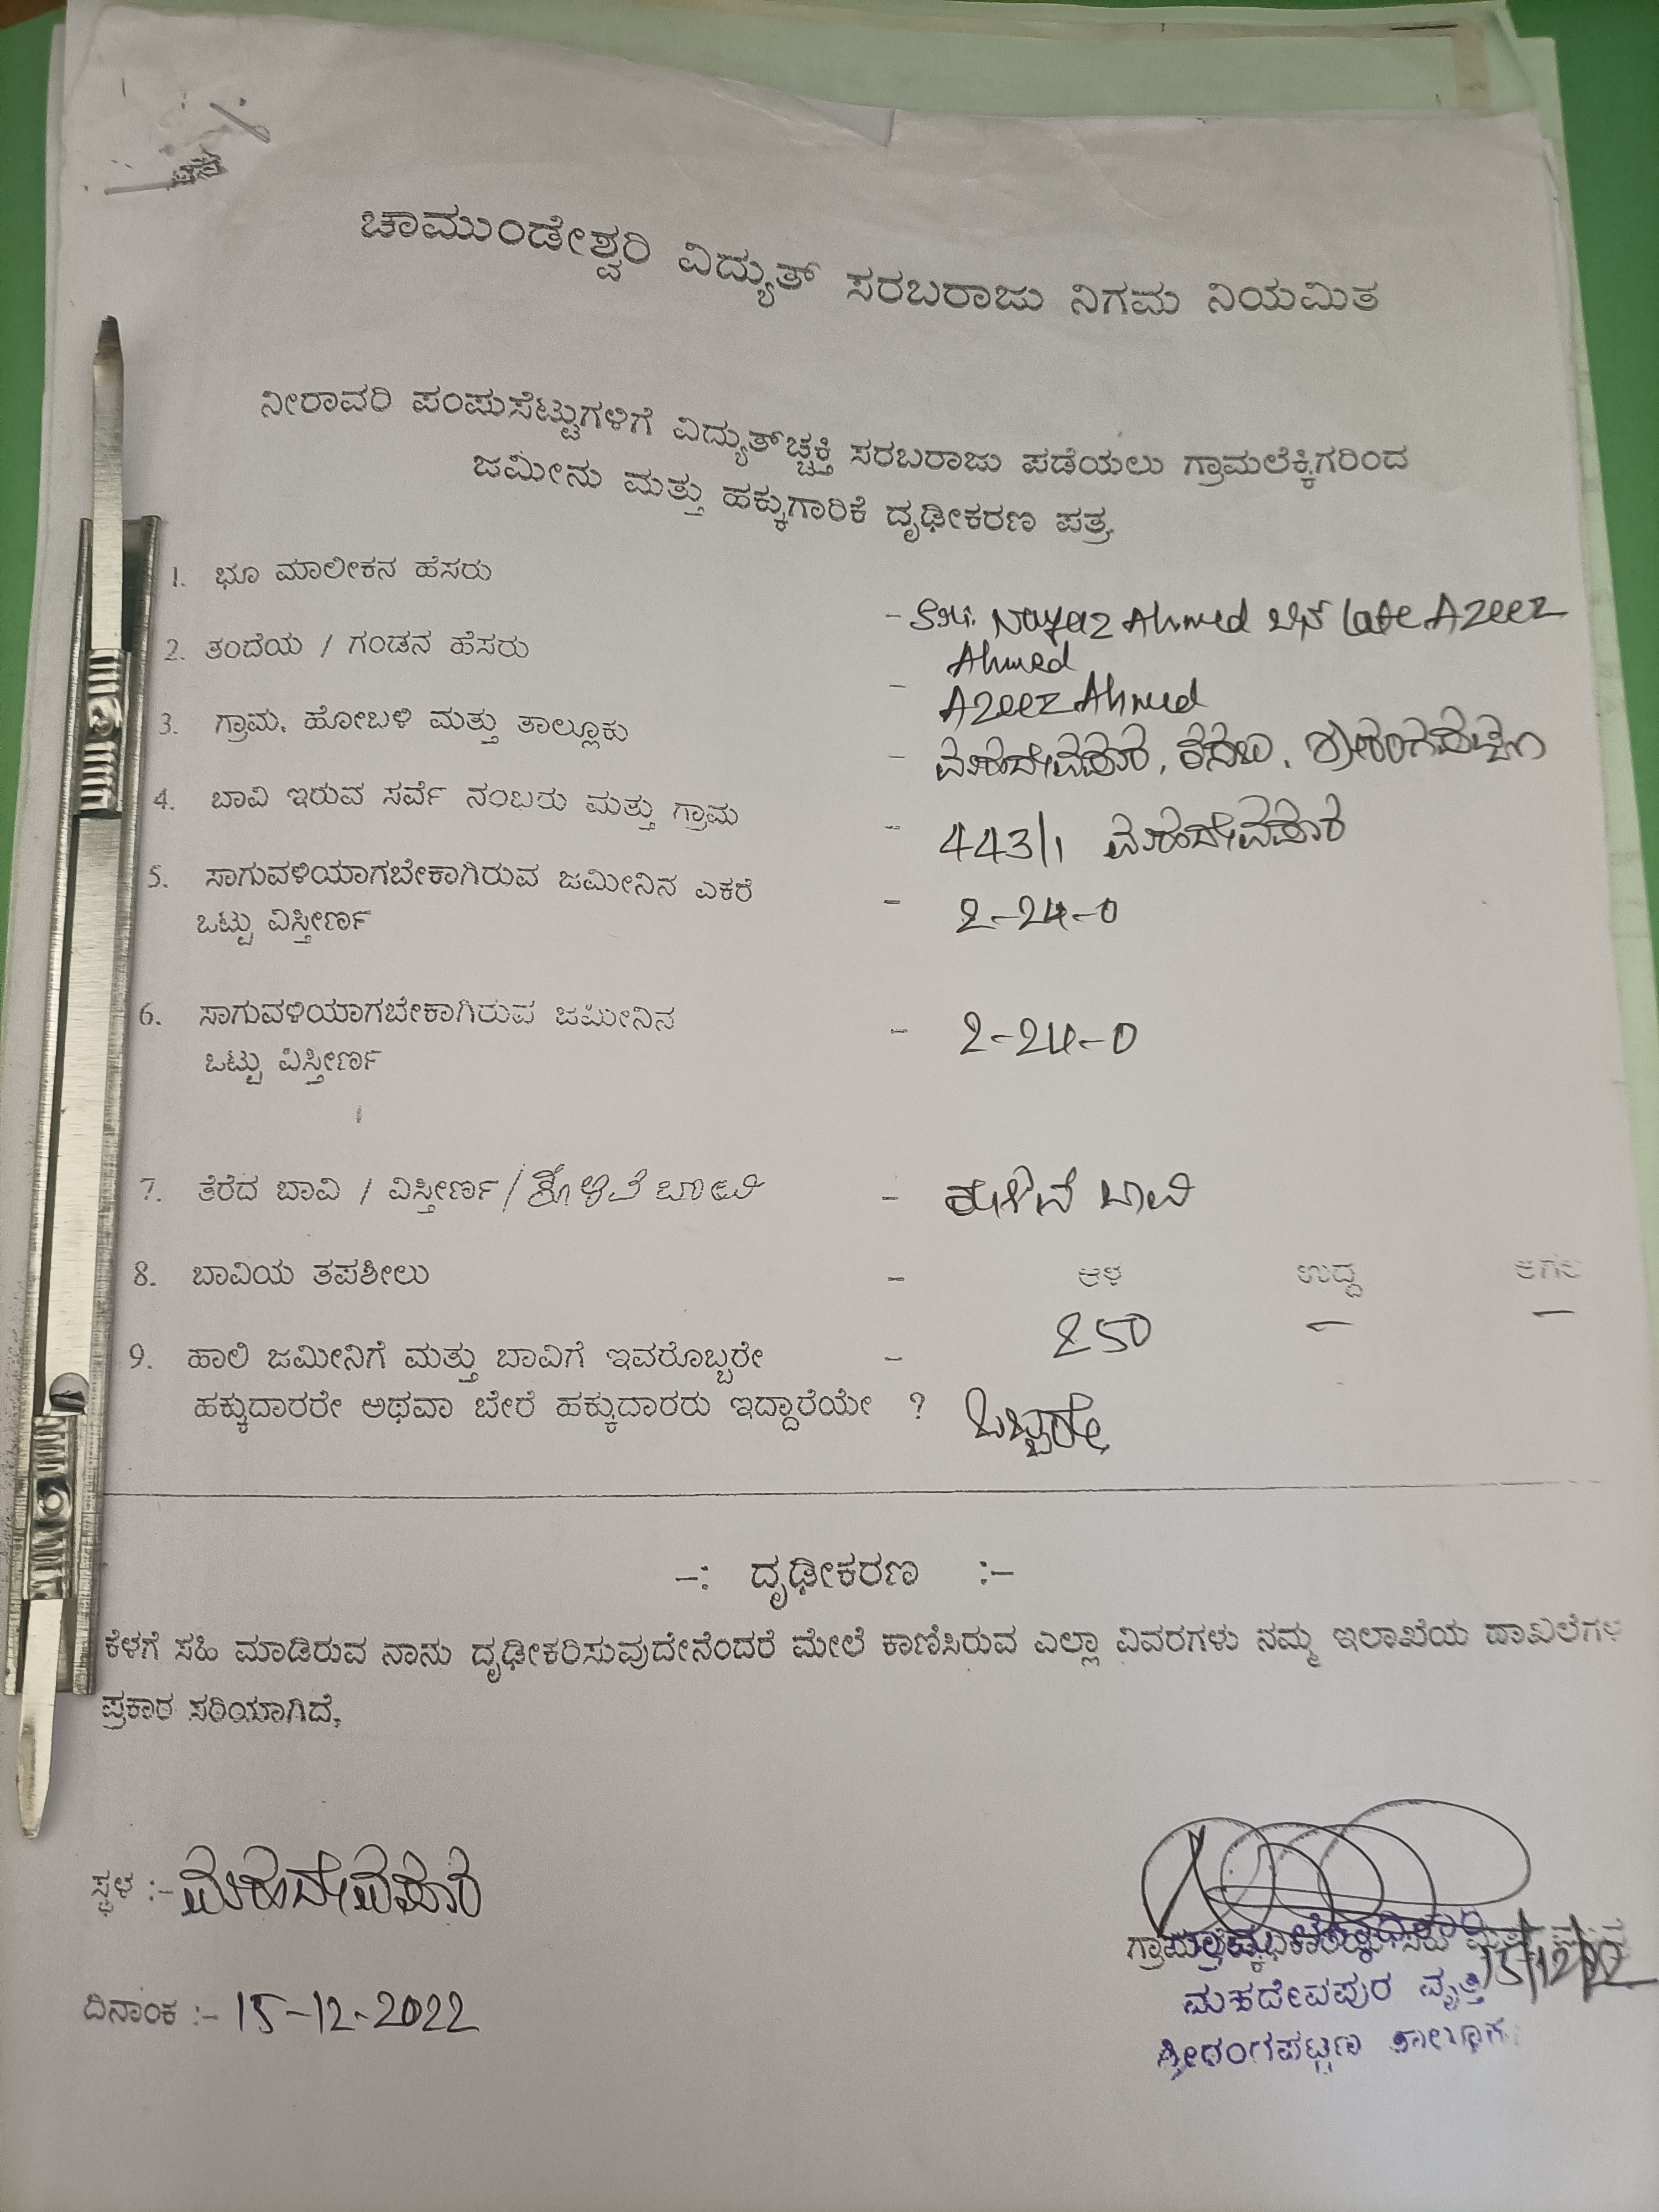 ಚಾಮುಂಡೇಶ್ವರಿ ವಿದ್ಯುತ್ ಸರಬರಾಜು ನಿಗಮ ನಿಯಮಿತ
ನೀರಾವರಿ ಪಂಪುಸೆಟ್ಟುಗಳಿಗೆ ವಿದ್ಯುತ್‌ಚ್ಛಕ್ತಿ ಸರಬರಾಜು ಪಡೆಯಲು ಗ್ರಾಮಲೆಕ್ಕಿಗರಿಂದ
ಜಮೀನು ಮತ್ತು ಹಕ್ಕುಗಾರಿಕೆ ದೃಢೀಕರಣ ಪತ್ರ
1. ಭೂ ಮಾಲೀಕನ ಹೆಸರು - Sri. Nayaz Ahmed ಬಿನ್ late Azeez
Ahmed
2. ತಂದೆಯ / ಗಂಡನ ಹೆಸರು - Azeez Ahmed
3. ಗ್ರಾಮ, ಹೋಬಳಿ ಮತ್ತು ತಾಲ್ಲೂಕು - ಮಹದೇವಪುರ, ಶ್ರೀರಂಗಪಟ್ಟಣ
4. ಬಾವಿ ಇರುವ ಸರ್ವೆ ನಂಬರು ಮತ್ತು ಗ್ರಾಮ - 443/1 ಮಹದೇವಪುರ
5. ಸಾಗುವಳಿಯಾಗಬೇಕಾಗಿರುವ ಜಮೀನಿನ ಎಕರೆ - 2-24-0
ಒಟ್ಟು ವಿಸ್ತೀರ್ಣ
6. ಸಾಗುವಳಿಯಾಗಬೇಕಾಗಿರುವ ಜಮೀನಿನ - 2-24-0
ಒಟ್ಟು ವಿಸ್ತೀರ್ಣ
7. ತೆರೆದ ಬಾವಿ / ವಿಸ್ತೀರ್ಣ / ಕೊಳವೆ ಬಾವಿ - ಕೊಳವೆ ಬಾವಿ
8. ಬಾವಿಯ ತಪಶೀಲು - ಆಳ ಉದ್ದ ಅಗಲ
250 — —
9. ಹಾಲಿ ಜಮೀನಿಗೆ ಮತ್ತು ಬಾವಿಗೆ ಇವರೊಬ್ಬರೇ -
ಹಕ್ಕುದಾರರೇ ಅಥವಾ ಬೇರೆ ಹಕ್ಕುದಾರರು ಇದ್ದಾರೆಯೇ ? ಒಬ್ಬರೇ
-: ದೃಢೀಕರಣ :-
ಕೆಳಗೆ ಸಹಿ ಮಾಡಿರುವ ನಾನು ದೃಢೀಕರಿಸುವುದೇನೆಂದರೆ ಮೇಲೆ ಕಾಣಿಸಿರುವ ಎಲ್ಲಾ ವಿವರಗಳು ನಮ್ಮ ಇಲಾಖೆಯ ದಾಖಲೆಗಳ
ಪ್ರಕಾರ ಸರಿಯಾಗಿದೆ,
ಸ್ಥಳ :- ಮಹದೇವಪುರ
15/12/22
ಮಹದೇವಪುರ ವೃತ್ತ
ದಿನಾಂಕ :- 15-12-2022
ಶ್ರೀರಂಗಪಟ್ಟಣ ತಾಲ್ಲೂಕು